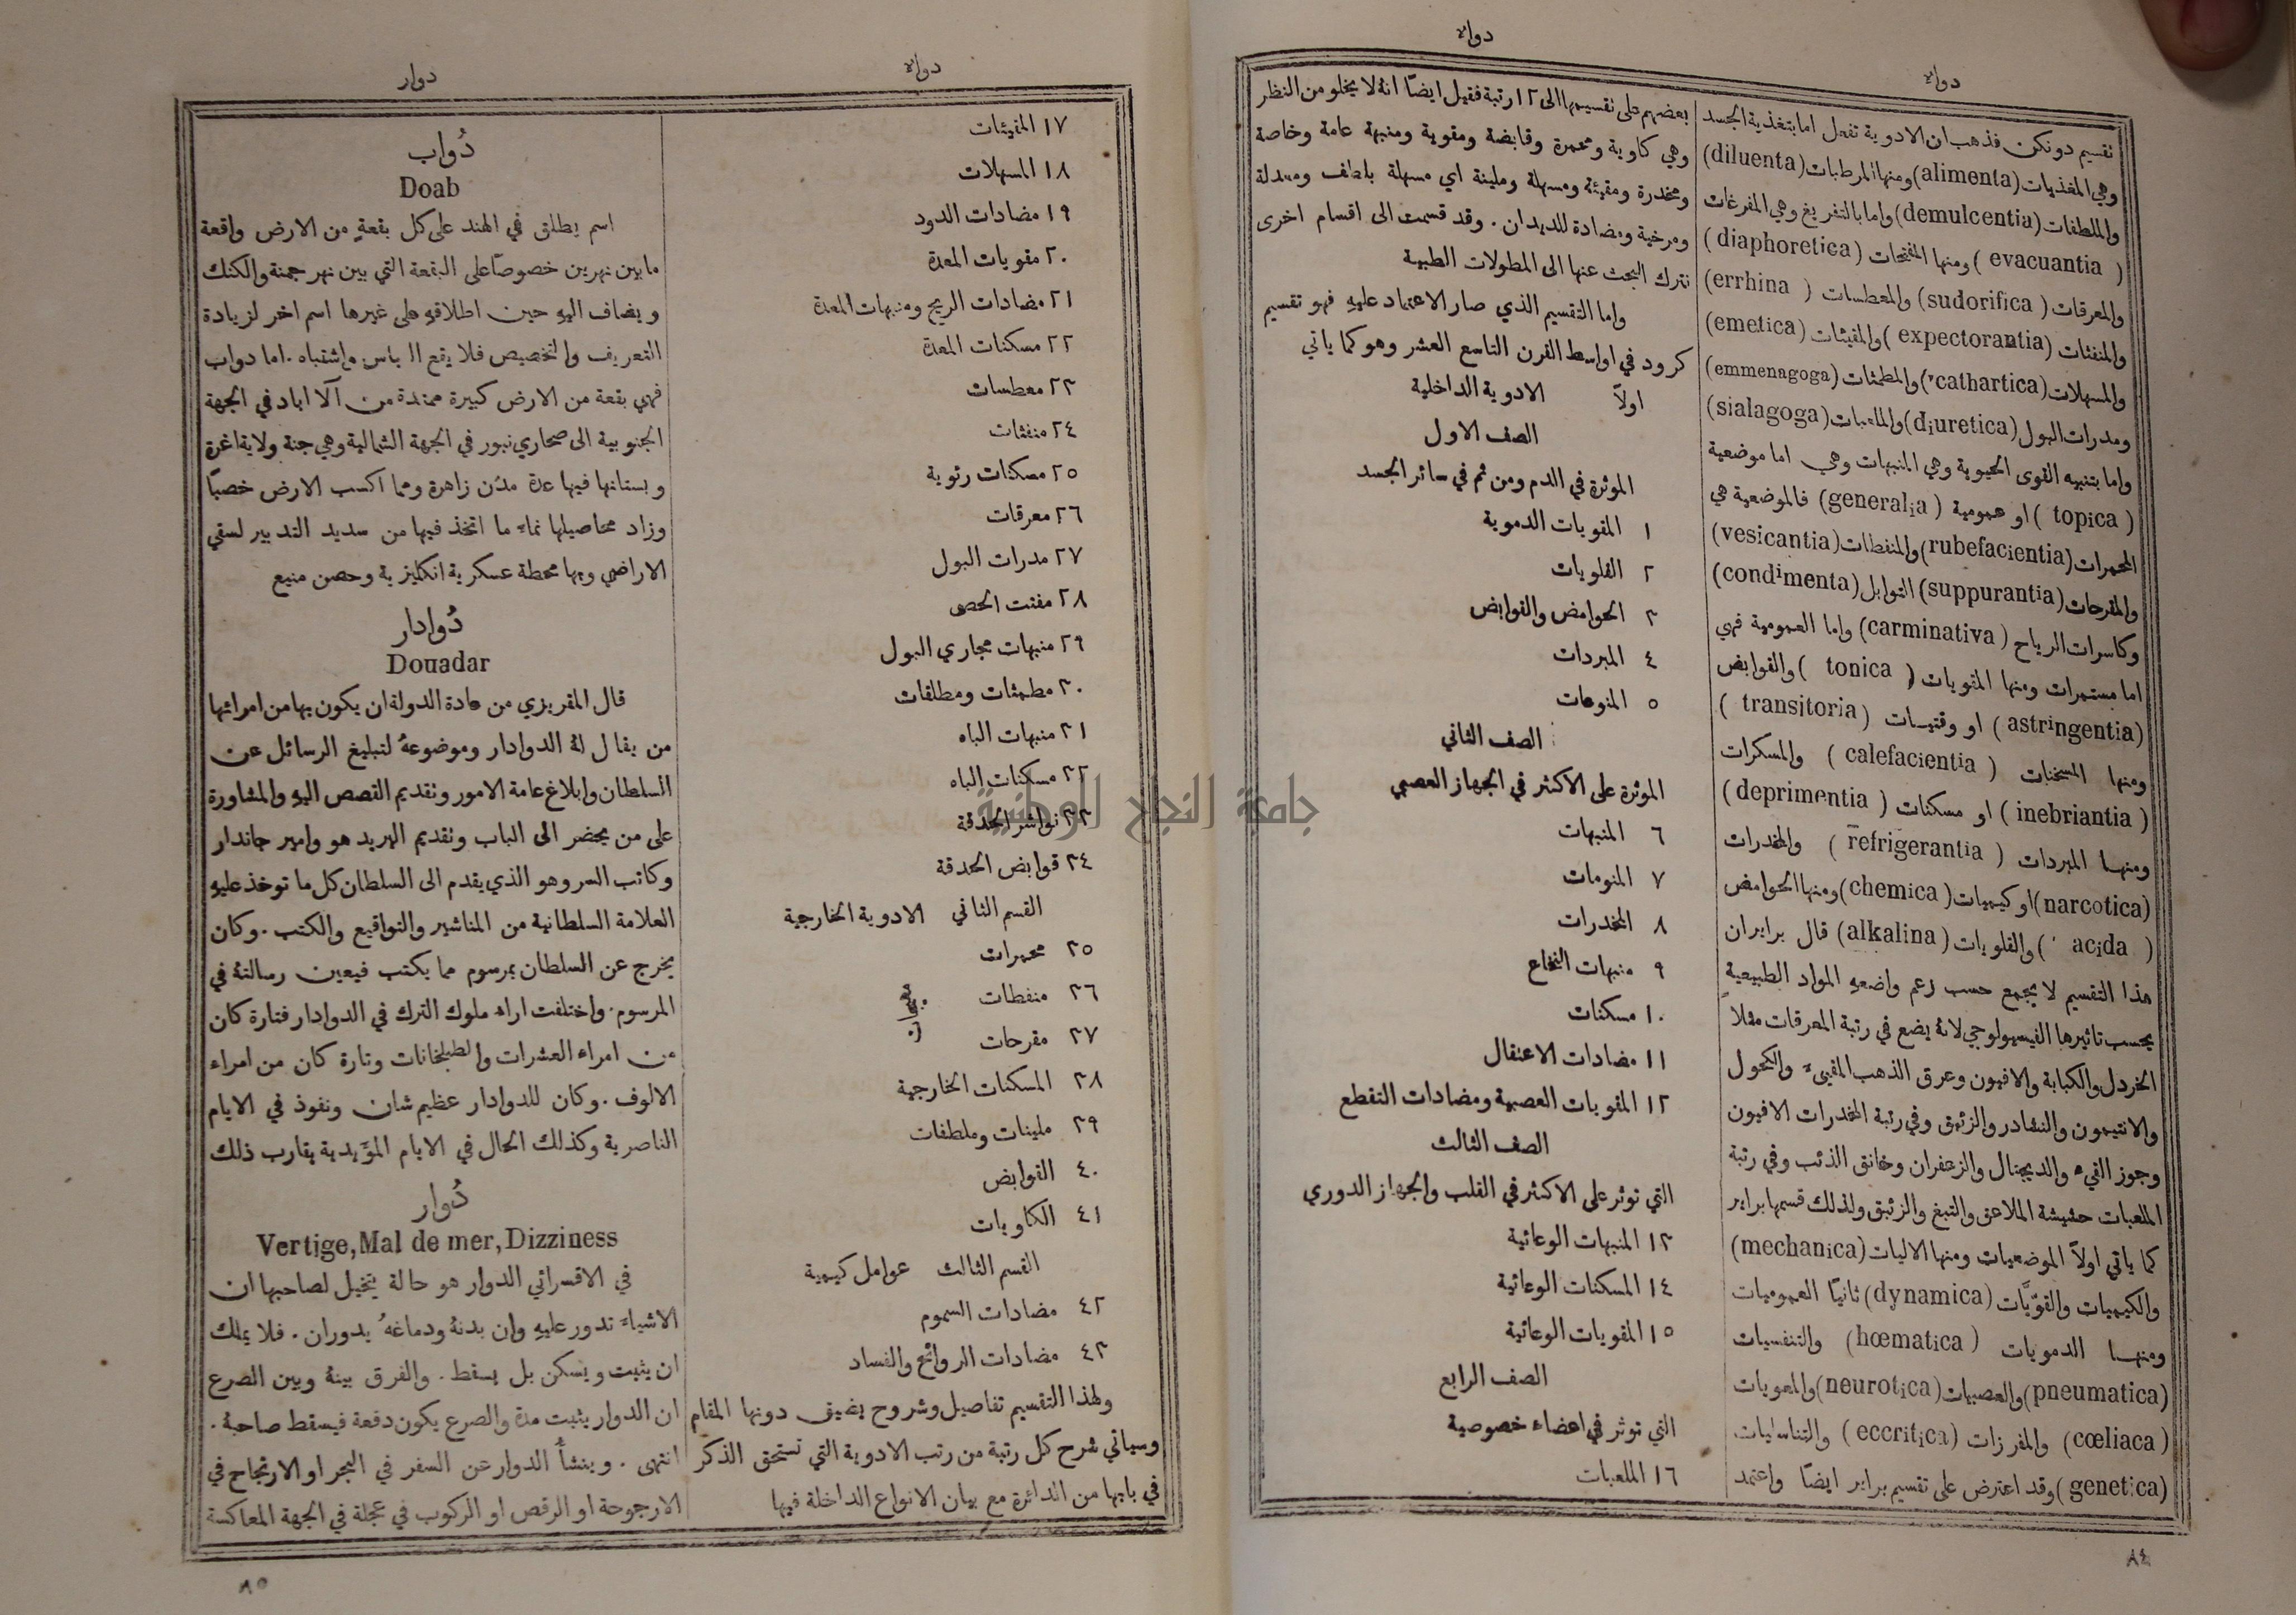 دواء
دواء
تقسيم دونكن فذهب ان الادوية تفعل اما بتغذية الجسد
وهي المغذيات (alimenta) ومنها المرطبات (diluenta)
والملطفات (demulcentia) واما بالتفريغ وهي المفرغات
(evacuantia) ومنها المفتحات (diaphoretica)
والمعرقات (sudorifica) والمعطسات (errhina)
والمنفثات (expectorantia) والمقيئات (emetica)
والمسهلات (cathartica) والمطمثات (emmenagoga)
ومدرات البول (diuretica) والملعبات (sialagoga)
واما بتنبيه القوى الحيوية وهي المنبهات وهي اما موضعية
(topica) او عمومية (generalia) فالموضعية هي
المحمرات (rubefacientia) والمنفطات (vesicantia)
والمقرحات (suppurantia) التوابل (condimenta)
وكاسرات الرياح (carminativa) واما العمومية فهي
اما مستمرات ومنها المقويات (tonica) والقوابض
(astringentia) او وقتيات (transitoria)
ومنها المسخنات (calefacientia) والمسكرات
(inebriantia) او مسكنات (deprimentia)
ومنها المبردات (refrigerantia) والمخدرات
(narcotica) او كيميات (chemica) ومنها الحوامض
(acida) والقلويات (alkalina) قال براير ان
هذا التقسيم لا يجمع حسب زعم واضعه المواد الطبيعية
بحسب تاثيرها الفيسيولوجي لانه يضع في رتبة المعرقات مثلاً
الخردل والكبابة والافيون وعرق الذهب المقيىء والكحول
والانتيمون والنشادر والزئبق وفي رتبة المخدرات الافيون
وجوز القيء والديجتال والزعفران وخانق الذئب وفي رتبة
الملعبات حشيشة الملاعق والتبغ والزئبق ولذلك قسمها براير
كما ياتي اولاً الموضعيات ومنها الاليات (mechanica)
والكيميات والقوّيّات (dynamica) ثانيًا العموميات
ومنها الدمويات (hœmatica) والتنفسيات
(pneumatica) والعصبيات (neurotica) والمعويات
(cœliaca) والمفرزات (eccritica) والتناسليات
(genetica) وقد اعترض على تقسيم براير ايضًا واعتمد
بعضهم على تقسيمها الى ١٢ رتبة فقيل ايضًا انه لا يخلو من النظار
وهي كاوية ومحمرة وقابضة ومقوية ومنبهة عامة وخاصة
ومخدرة ومقيئة ومسهلة وملينة اي مسهلة بلطف ومعدلة
ومرخية ومضادة للديدان. وقد قسمت الى اقسام اخرى
نترك البحث عنها الى المطولات الطبية
واما التقسيم الذي صار الاعتماد عليه فهو تقسيم
كرود في اواسط القرن التاسع العشر وهو كما ياتي
اولاً الادوية الداخلية
الصف الاول
الموثرة في الدم ومن ثم في سائر الجسد
١ المقويات الدموية
٢ القلويات
٣ الحوامض والقوابض
٤ المبردات
٥ المنوعات
الصف الثاني
الموثرة على الاكثر في الجهاز العصبي
٦ المنبهات
٧ المنومات
٨ المخدرات
٩ منبهات النخاع
١٠ مسكنات
١١ مضادات الاعتقال
١٢ المقويات العصبية ومضادات التقطع
الصف الثالث
التي توثر على الاكثر في القلب والجهاز الدوري
١٣ المنبهات الوعائية
١٤ المسكنات الوعائية
١٥ المقويات الوعائية
الصف الرابع
التي توثر في اعضاء خصوصية
١٦ الملعبات
٨٤
دواء
دوار
١٧ المقيئات
١٨ المسهلات
١٩ مضادات الدود
٢٠ مقويات المعدة
٢١ مضادات الريح ومنبهات المعدة
٢٢ مسكنات المعدة
٢٣ معطسات
٢٤ منفثات
٢٥ مسكنات رئوية
٢٦ معرقات
٢٧ مدرات البول
٢٨ مفتت الحصى
٢٩ منبهات مجاري البول
٣٠ مطمثات ومطلقات
٣١ منبهات الباه
٣٢ مسكنات الباه
٣٣ نواشر الحدقة
٣٤ قوابض الحدقة
القسم الثاني الادوية الخارجية
٣٥ محمرات
٣٦ منفطات
٣٧ مقرحات
٣٨ المسكنات الخارجية
٣٩ ملينات وملطفات
٤٠ القوابض
٤١ الكاويات
القسم الثالث عوامل كيمية
٤٢ مضادات السموم
٤٣ مضادات الروائح والفساد
ولهذا التقسيم تفاصيل وشروح يضيق دونها المقام
وسياتي شرح كل رتبة من رتب الادوية التي تستحق الذكر
في بابها من الدائرة مع بيان الانواع الداخلة فيها
دُواب
Doab
اسم يطلق في الهند على كل بقعةٍ من الارض واقعة
ما بين نهرين خصوصًا على البقعة التي بين نهر جمنة والكنك
ويضاف اليه حين اطلاقه على غيرها اسم اخر لزيادة
التعريف والتخصيص فلا يقع التباس واشتباه. اما دواب
فهي بقعة من الارض كبيرة ممتدة من آلا اباد في الجهة
الجنوبية الى صحاري نبور في الجهة الشمالية وهي جنة ولاية اغرة
وبستانها فيها عدة مدُن زاهرة ومما اكسب الارض خصبًا
وزاد محاصيلها نماء ما اتخذ فيها من سديد التدبير لسقي
الاراضي وبها محطة عسكرية انكليزية وحصن منيع
دُوادار
Douadar
قال المقريزي من عادة الدولة ان يكون بها من امرائها
من يقال له الدوادار وموضوعهُ لتبليغ الرسائل عن
السلطان وابلاغ عامة الامور وتقديم القصص اليه والمشاورة
على من يحضر الى الباب وتقديم البريد هو وامير جاندار
وكاتب السر وهو الذي يقدم الى السلطان كل ما توخذ عليه
العلامة السلطانية من المناشير والتواقيع والكتب. وكان
يخرج عن السلطان بمرسوم مما يكتب فيعين رسالته في
المرسوم. واختلفت اراء ملوك الترك في الدوادار فتارة كان
من امراء العشرات والطبلخانات وتارة كان من امراء
الالوف. وكان للدوادار عظيم شان ونفوذ في الايام
الناصرية وكذلك الحال في الايام المؤَيدية يقارب ذلك
دُوار
Vertige, Mal de mer, Dizziness
في الاقسرائي الدوار هو حالة يتخيل لصاحبها ان
الاشياء تدور عليه وان بدنه ودماغهُ يدوران. فلا يملك
ان يثبت ويسكن بل يسقط. والفرق بينه وبين الصرع
ان الدوار يثبت مدة والصرع يكون دفعة فيسقط صاحبه.
انتهى. وينشأ الدوار عن السفر في البحر او الارتجاج في
الارجوحة او الرقص او الركوب في عجلة في الجهة المعاكسة
٨٥
جامعة النجاح الوطنية